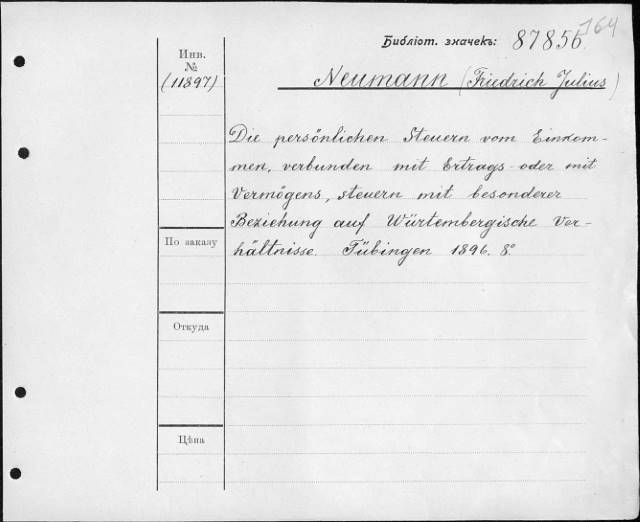 164
Библіот. значекъ: 87856
Инв.
№
(11897)
Neumann (Friedrich Julius)
Die persönlichen Steuern vom Einkom-
men, verbunden mit Ertrags- oder mit
Vermögens, steuern mit besonderer
Beziehung auf Würtembergische Ver-
hältnisse. Tübingen 1896. 8º
По заказу
Откуда
Цѣна